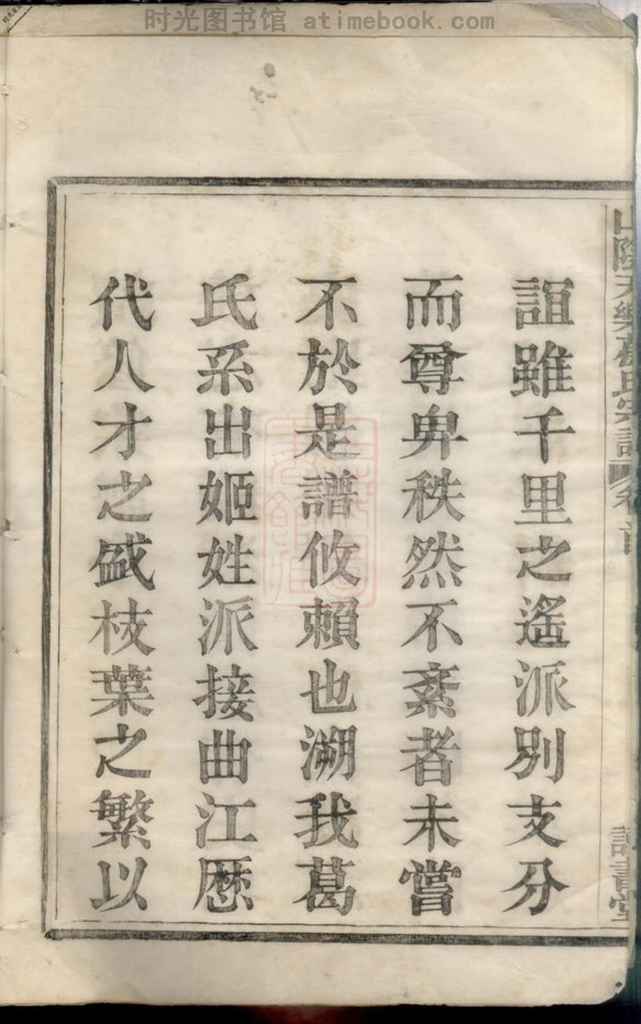 时光图书馆 atimebook.com
誼雖千里之遙派別支分
而尊卑秩然不紊者未嘗
不於是譜攸賴也溯我葛
氏系出姬姓派接曲江歷
代人才之盛枝葉之繁以